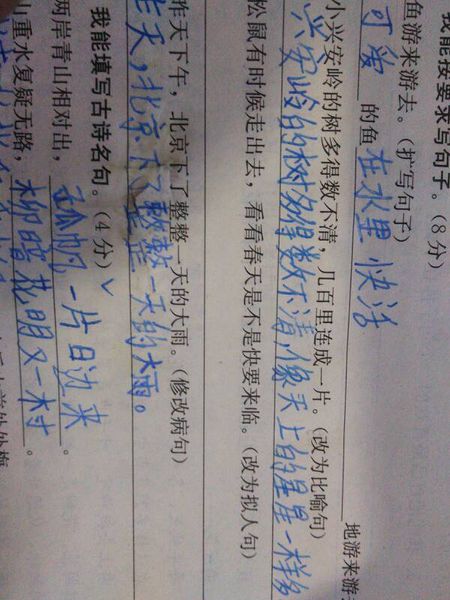 我能按要求写句子。(8分)
鱼游来游去。(扩写句子)
可爱的鱼在水里快活地游来游
小兴安岭的树多得数不清,几百里连成一片。(改为比喻句)
兴安岭的树多得数不清,像天上的星星一样多
松鼠有时候走出去,看看春天是不是快要来临。(改为拟人句)
昨天下午,北京下了整整一天的大雨。(修改病句)
昨天,北京下了整整一天的大雨。
我能填写古诗名句。(4分)
两岸青山相对出,孤帆一片日边来。
重水复疑无路,柳暗花明又一村。